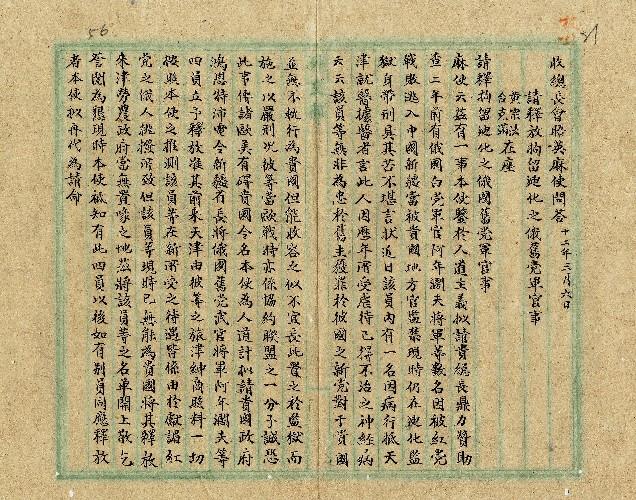 56
21
收總長會晤英麻使問答 十二年三月六日
黃宗法
台克滿 在座
請釋放拘留迪化之俄舊党軍官事
請釋拘留迪化之俄國舊党軍官事
麻使云茲有一事本使鑒於人道主義擬請貴總長鼎力贊助
查二年前有俄國白党軍官阿年濶夫將軍等数名因被紅党
戰敗逃入中國新疆當被貴國地方官監禁現時仍在迪化監
獄身帶刑具其苦不堪言狀近日該員內有一名因病行抵天
津就醫據醫者言此人因歷年所受虐待已得不治之神經病
云云該員等無非為忠於舊主獲罪於彼國之新党對于貴國
並無不軌行為貴國但能收容之似不宜長此置之於監獄而
施之以嚴刑况彼等當歐戰時亦係協約聯盟之一分子誠恐
此事傳諸歐美有碍貴國令名本使為人道計擬請貴國政府
鴻恩特沛電令新疆省長將俄國舊党武官將軍阿年濶夫等
四員立予釋放准其前來天津由彼等之旅津紳商照料一切
按照本使之推測該員等在新所受之待遇皆係由於獻謟紅
党之俄人挑撥所致但該員等現時已無能為貴國將其釋放
來津勞農政府當無置喙之地茲將該員等之名單開上敬乞
詧閱為懇現時本使祗知有此四員以後如有别員同應釋放
者本使擬再代為請命